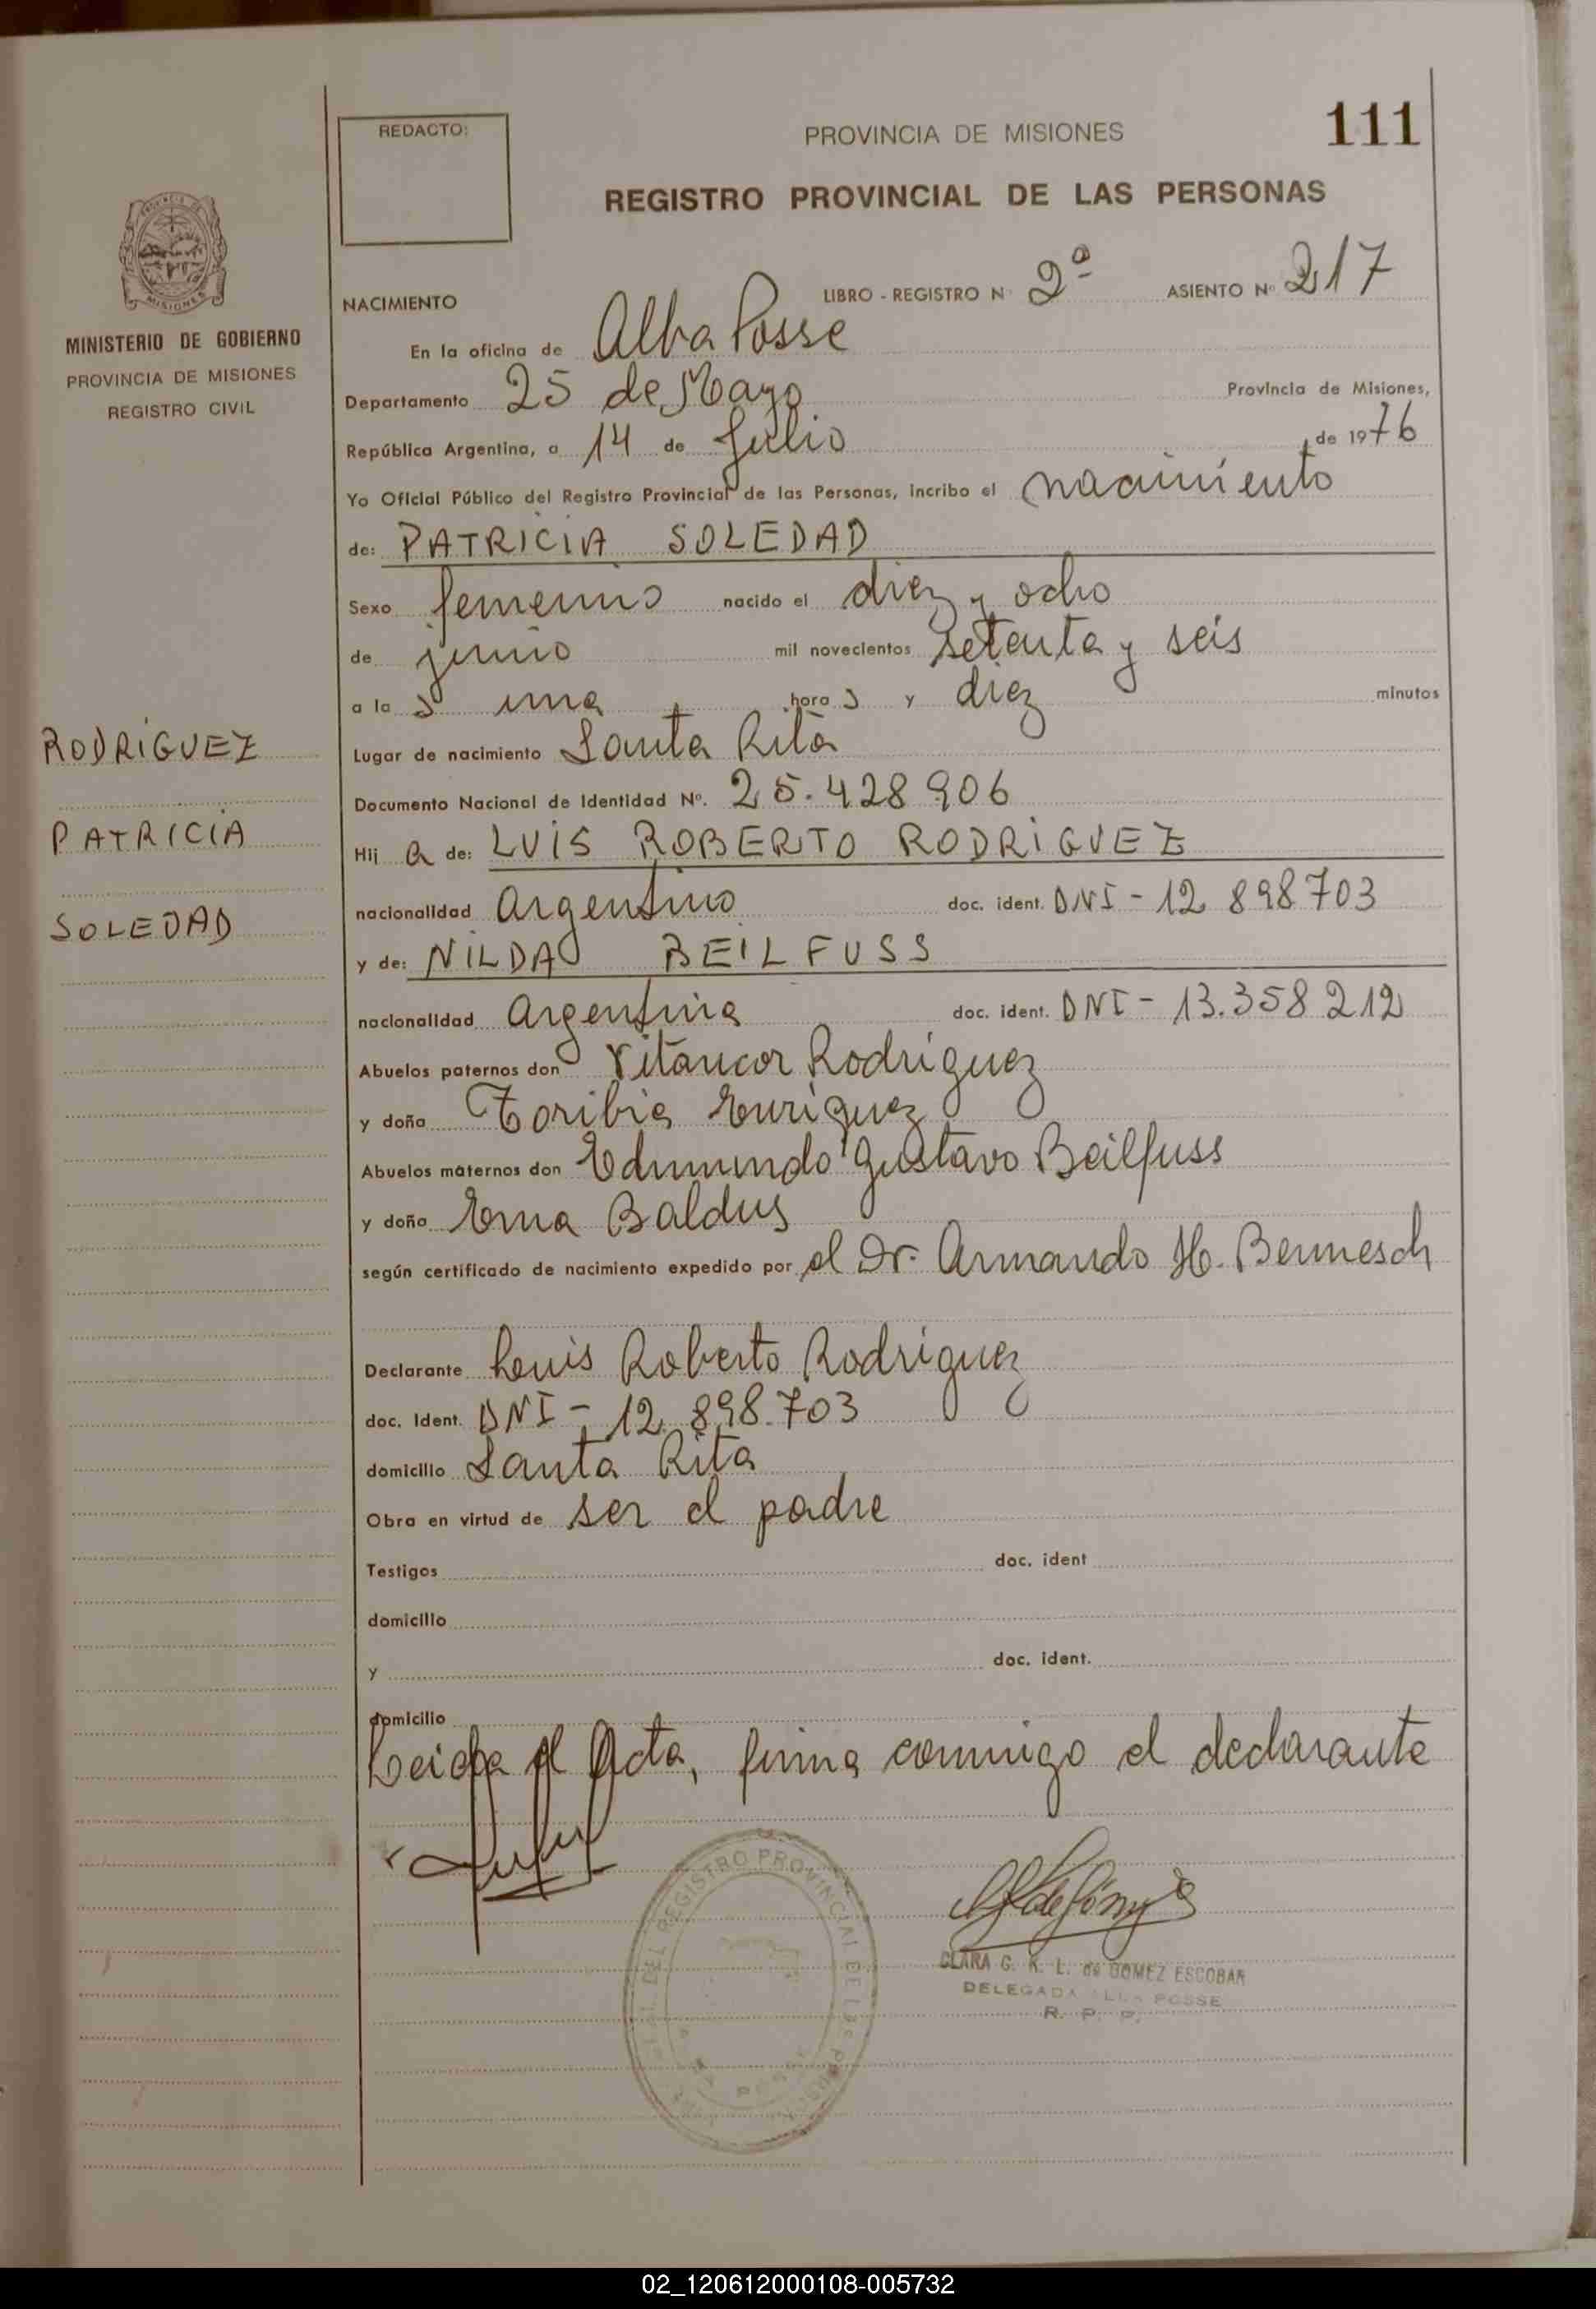 REDACTO:
PROVINCIA DE MISIONES
111
REGISTRO PROVINCIAL DE LAS PERSONAS
MISIONES
MINISTERIO DE GOBIERNO
PROVINCIA DE MISIONES
REGISTRO CIVIL
NACIMIENTO LIBRO - REGISTRO Nº 2º ASIENTO Nº 217
En la oficina de Alba Posse
Departamento 25 de Mayo Provincia de Misiones,
República Argentina, a 14 de Julio de 1976
Yo Oficial Público del Registro Provincial de las Personas, incribo el nacimiento
de: PATRICIA SOLEDAD
Sexo femenino nacido el diez y ocho
de junio mil novecientos setenta y seis
a la s una hora s y diez minutos
Lugar de nacimiento Santa Rita
Documento Nacional de Identidad Nº. 25.428906
Hij a de: LUIS ROBERTO RODRIGUEZ
nacionalidad argentino doc. ident. DNI - 12 898703
y de: NILDA BEILFUSS
nacionalidad argentina doc. ident. DNI - 13.358212
Abuelos paternos don Vitancor Rodríguez
y doña Toribia Enriquez
Abuelos maternos don Edmundo Gustavo Beilfuss
y doña Erna Baldus
según certificado de nacimiento expedido por el Dr. Armando H. Bennesch
Declarante Luis Roberto Rodríguez
doc. Ident. DNI - 12.898.703
domicilio Santa Rita
Obra en virtud de ser el padre
Testigos doc. ident
domicilio
y doc. ident.
domicilio
Leida el Acta, firma conmigo el declarante
RODRIGUEZ
PATRICIA
SOLEDAD
DEL REGISTRO PROVINCIAL DE LAS
CLARA G. K. L. de GOMEZ ESCOBAR
DELEGADA ALBA POSSE
R. P. P.
02_120612000108-005732